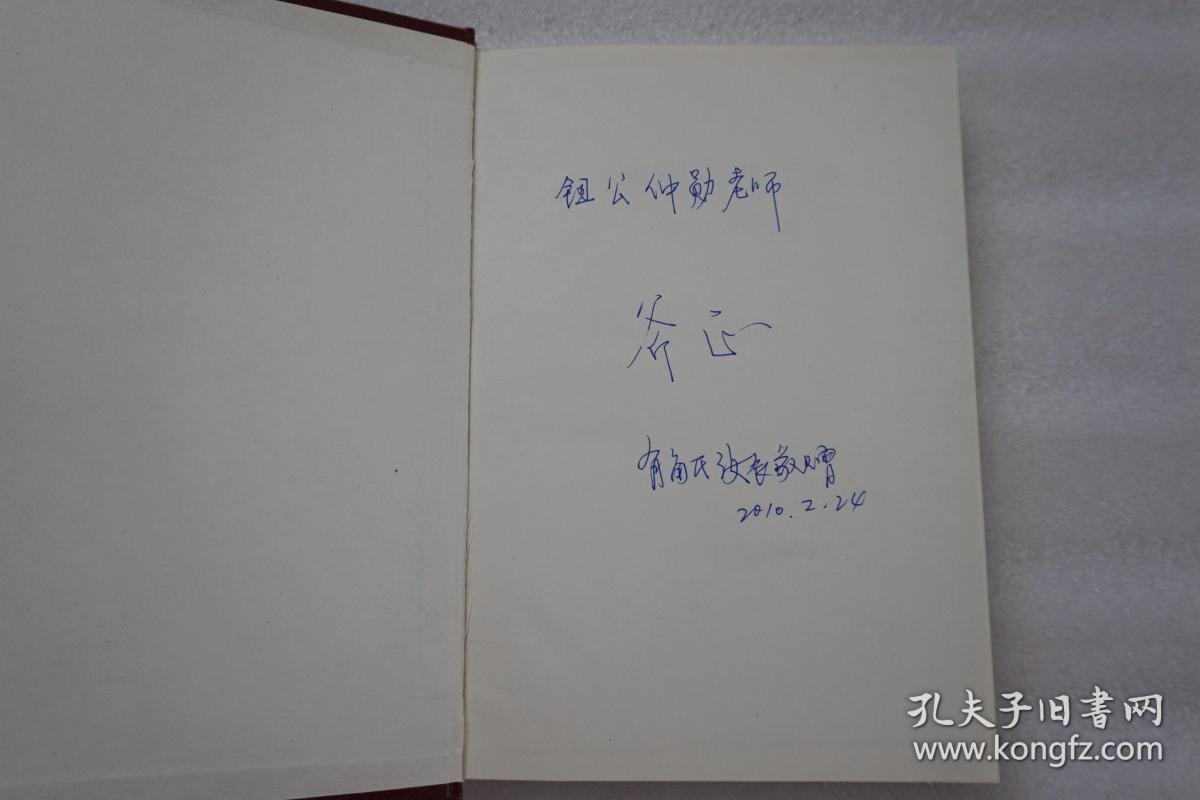 钮公仲勋老师
斧正
敬赠
2010.2.24
孔夫子旧書网
www.kongfz.com